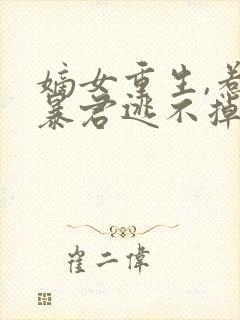 嫡女重生,惹
暴君逃不掉
崔二偉